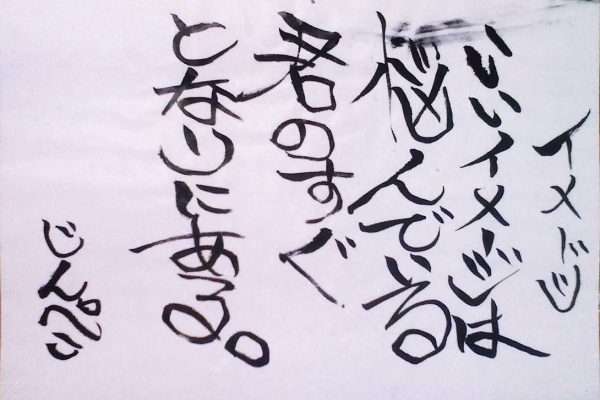 イメージ
いいイメージは
悩んでいる
君のすぐ
となりにある。
じんぺい